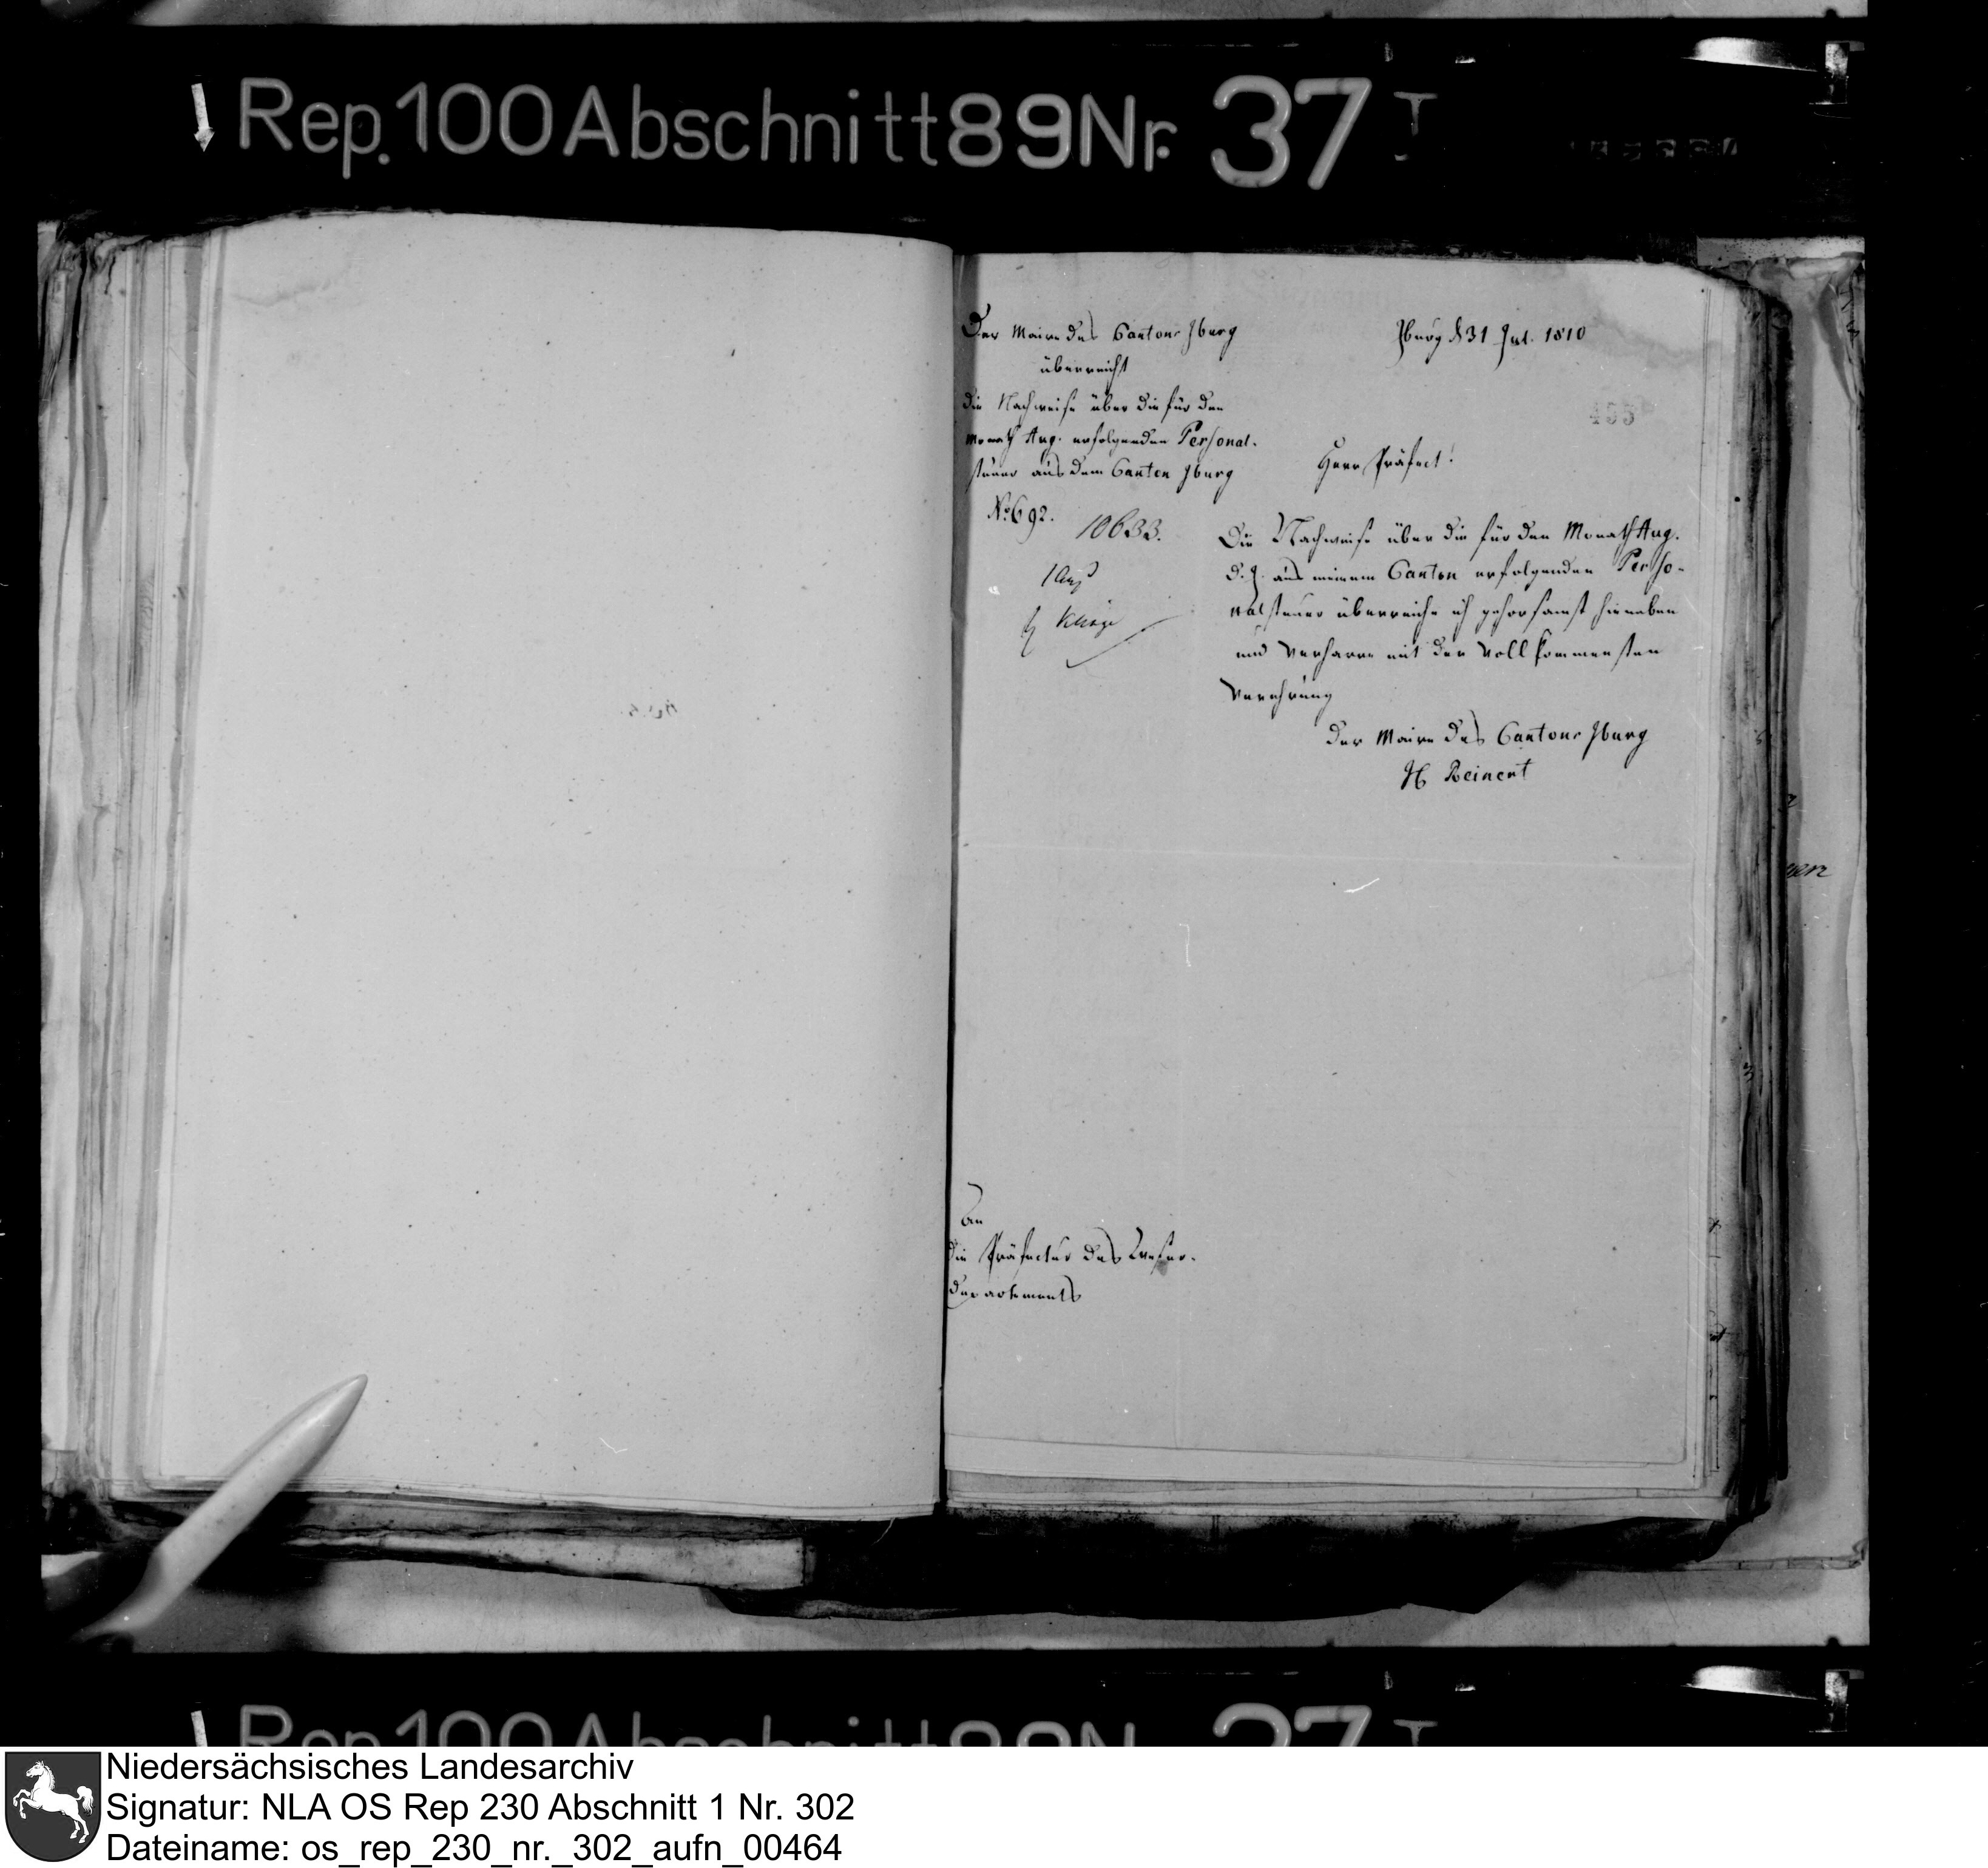 Rep. 100 Abschnitt 89 Nr. 37 I
Der Maire des Cantons Iburg
überreicht
die Nachweise über die für den
Monath Aug. erfolgenden Personal-
steuer aus dem Canton Iburg
No 692.
10633.
1 Aug
Iburg d 31 Jul. 1810
Herr Präfect!
Die Nachweise über die für den Monath Aug.
d. J. aus meinem Canton erfolgenden Perso-
nalsteuer überreiche ich gehorsamst hieneben
und verharre mit der vollkommensten
Verehrung
Der Maire des Cantons Iburg
H Reinert
An
die Präfectur des Weser-
departements
Rep. 100 Abschnitt 89 Nr. 37 I
Niedersächsisches Landesarchiv
Signatur: NLA OS Rep 230 Abschnitt 1 Nr. 302
Dateiname: os_rep_230_nr._302_aufn_00464